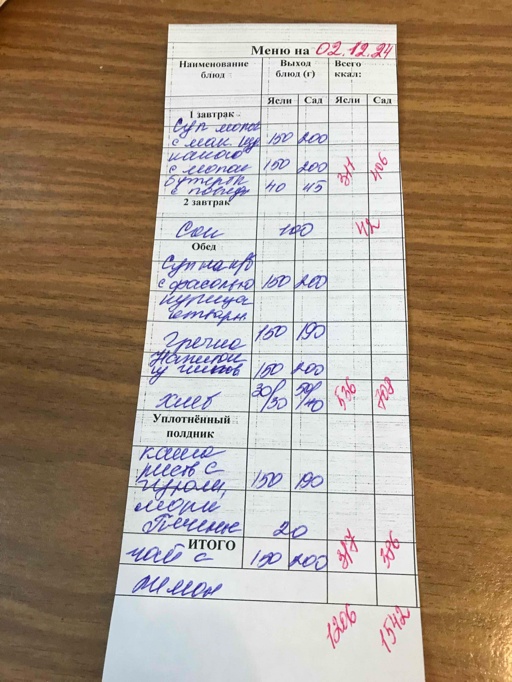 Меню на 02.12.24
Наименование блюд Выход блюд (г) Всего ккал:
Ясли Сад Ясли Сад
1 завтрак
Суп молоч
с мак. 150 200
какао
с молок 150 200
бутерб 40 45 317 406
с повид
2 завтрак
Сок 100 42
Обед
Суп на к/б
с фасолью 150 200
курица
отварн.
Гречка 150 190
Напиток
150 200
хлеб 30/30 50/40 536 708
Уплотнённый
полдник
каша
рисов с 150 190
морк
Печенье 20
ИТОГО
чай с 150 200 317 386
лимон
1206 1542